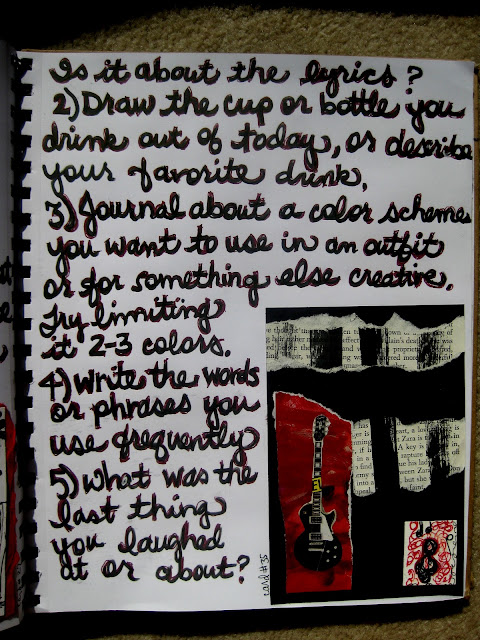 Is it about the lyrics?
2) Draw the cup or bottle you
drink out of today, or describe
your favorite drink.
3) Journal about a color scheme
you want to use in an outfit
or for something else creative.
Try limiting
it 2-3 colors.
4) Write the words
or phrases you
use frequently
5) What was the
last thing
you laughed
at or about?
card #35